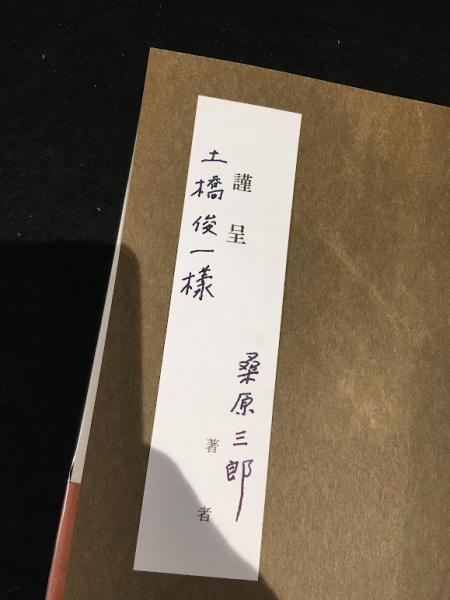 謹呈
土橋俊一様
桑原三郎
著者